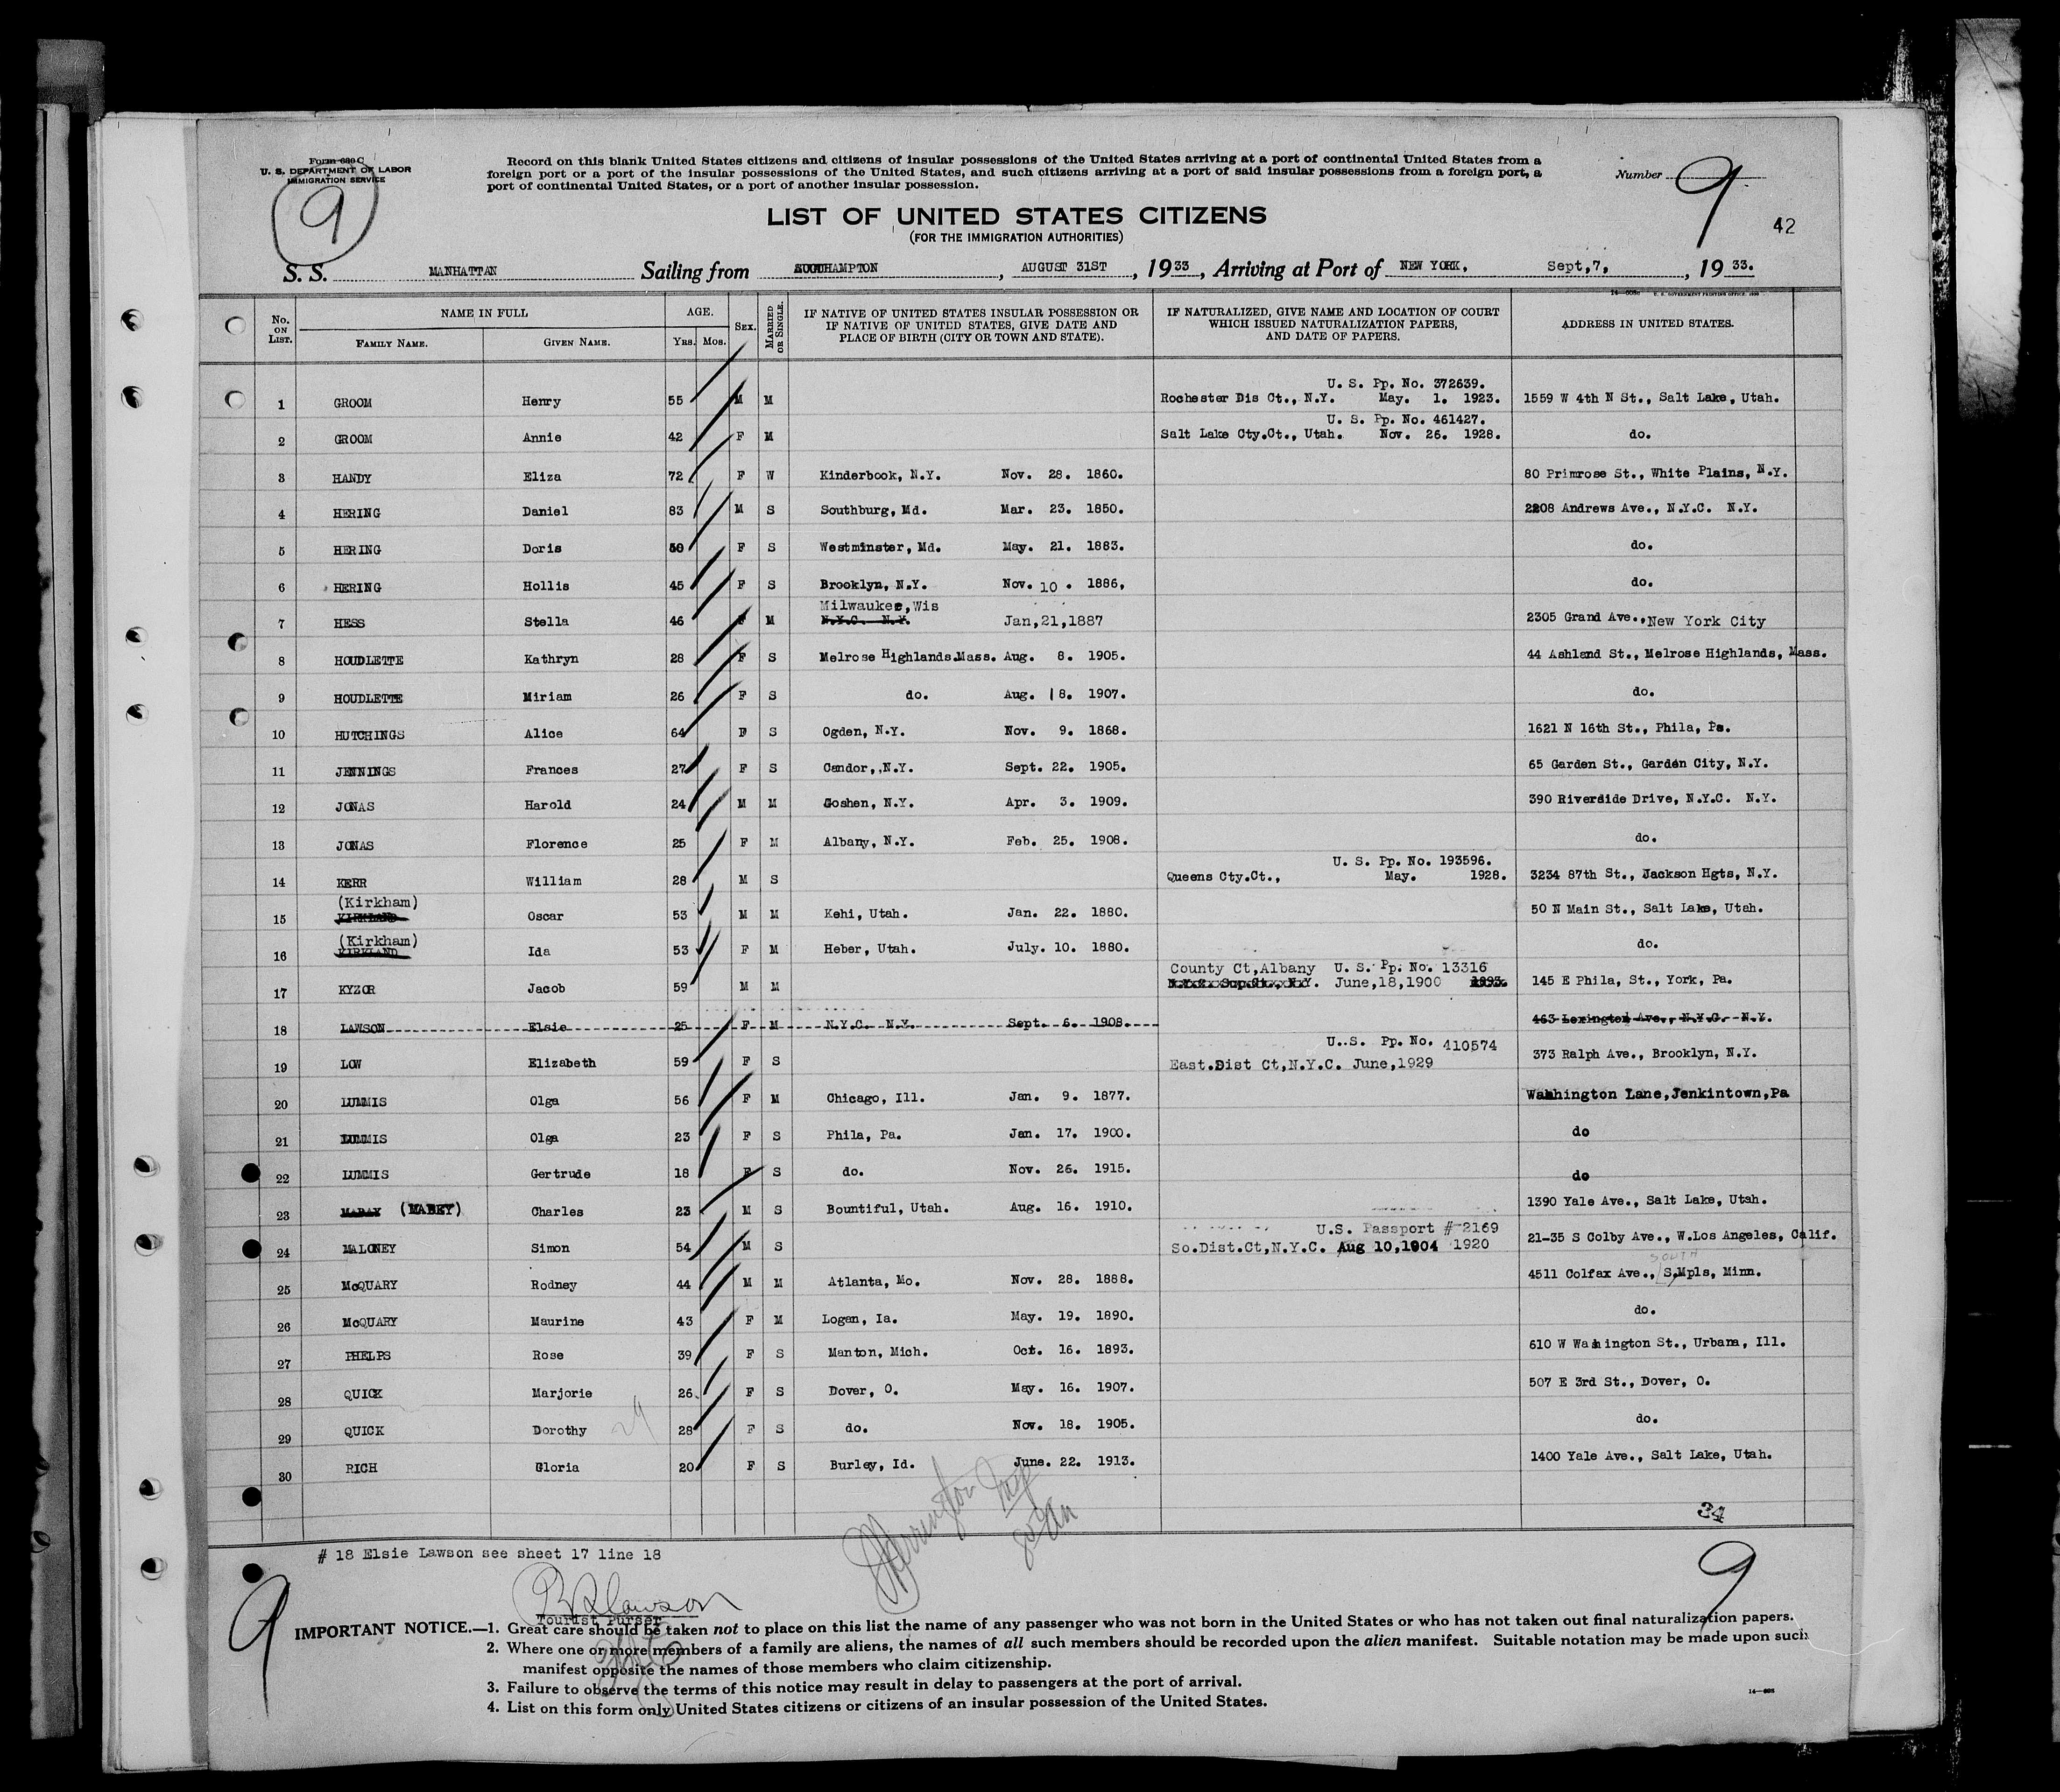 Form 630 C
U. S. DEPARTMENT OF LABOR
IMMIGRATION SERVICE
9
Record on this blank United States citizens and citizens of insular possessions of the United States arriving at a port of continental United States from a
foreign port or a port of the insular possessions of the United States, and such citizens arriving at a port of said insular possessions from a foreign port, a
port of continental United States, or a port of another insular possession.
Number 9
42
LIST OF UNITED STATES CITIZENS
(FOR THE IMMIGRATION AUTHORITIES)
S. S. MANHATTAN Sailing from SOUTHAMPTON, AUGUST 31ST, 1933, Arriving at Port of NEW YORK, Sept,7, , 19 33.
No. ON LIST. NAME IN FULL FAMILY NAME. GIVEN NAME. AGE. Yrs. Mos. SEX. MARRIED OR SINGLE. IF NATIVE OF UNITED STATES INSULAR POSSESSION OR IF NATIVE OF UNITED STATES, GIVE DATE AND PLACE OF BIRTH (CITY OR TOWN AND STATE). IF NATURALIZED, GIVE NAME AND LOCATION OF COURT WHICH ISSUED NATURALIZATION PAPERS, AND DATE OF PAPERS. ADDRESS IN UNITED STATES.
U. S. Pp. No. 372639.
1 GROOM Henry 55 M M Rochester Dis Ct., N.Y. May. 1. 1923. 1559 W 4th N St., Salt Lake, Utah.
U. S. Pp. No. 461427.
2 GROOM Annie 42 F M Salt Lake Cty.Ct., Utah. Nov. 26. 1928. do.
3 HANDY Eliza 72 F W Kinderbook, N.Y. Nov. 28. 1860. 80 Primrose St., White Plains, N.Y.
4 HERING Daniel 83 M S Southburg, Md. Mar. 23. 1850. 2208 Andrews Ave., N.Y.C. N.Y.
5 HERING Doris 50 F S Westminster, Md. May. 21. 1883. do.
6 HERING Hollis 45 F S Brooklyn, N.Y. Nov. 10 . 1886, do.
Milwaukee,Wis
7 HESS Stella 46 F M N.Y.C. N.Y. Jan,21,1887 2305 Grand Ave.,New York City
8 HOUDLETTE Kathryn 28 F S Melrose Highlands.Mass. Aug. 8. 1905. 44 Ashland St., Melrose Highlands, Mass.
9 HOUDLETTE Miriam 26 F S do. Aug. 18. 1907. do.
10 HUTCHINGS Alice 64 F S Ogden, N.Y. Nov. 9. 1868. 1621 N 16th St., Phila, Pa.
11 JENNINGS Frances 27 F S Candor,.N.Y. Sept. 22. 1905. 65 Garden St., Garden City, N.Y.
12 JONAS Harold 24 M M Goshen, N.Y. Apr. 3. 1909. 390 Riverside Drive, N.Y.C. N.Y.
13 JONAS Florence 25 F M Albany, N.Y. Feb. 25. 1908. do.
U. S. Pp. No. 193596.
14 KERR William 28 M S Queens Cty.Ct., May. 1928. 3234 87th St., Jackson Hgts, N.Y.
(Kirkham)
15 KIRKLAND Oscar 53 M M Kehi, Utah. Jan. 22. 1880. 50 N Main St., Salt Lake, Utah.
(Kirkham)
16 KIRKLAND Ida 53 F M Heber, Utah. July. 10. 1880. do.
County Ct,Albany U. S. Pp. No. 13316
17 KYZOR Jacob 59 M M June,18,1900 1893. 145 E Phila, St., York, Pa.
18 LAWSON Elsie 25 F M N.Y.C. N.Y. Sept. 6. 1908. 463 Lexington Ave., N.Y.C. N.Y.
U.S. Pp. No. 410574
19 LOW Elizabeth 59 F S East.Dist Ct,N.Y.C. June,1929 373 Ralph Ave., Brooklyn, N.Y.
20 LUMMIS Olga 56 F M Chicago, Ill. Jan. 9. 1877. Washington Lane,Jenkintown,Pa
21 LUMMIS Olga 23 F S Phila, Pa. Jan. 17. 1900. do
22 LUMMIS Gertrude 18 F S do. Nov. 26. 1915. do
23 MABAY (MABEY) Charles 23 M S Bountiful, Utah. Aug. 16. 1910. 1390 Yale Ave., Salt Lake, Utah.
U.S. Passport # 2169
24 MALONEY Simon 54 M S So.Dist.Ct,N.Y.C. Aug 10,1904 1920 21-35 S Colby Ave., W.Los Angeles, Calif.
SOUTH
25 McQUARY Rodney 44 M M Atlanta, Mo. Nov. 28. 1888. 4511 Colfax Ave., S,Mpls, Minn.
26 McQUARY Maurine 43 F M Logan, Ia. May. 19. 1890. do.
27 PHELPS Rose 39 F S Manton, Mich. Oct. 16. 1893. 610 W Washington St., Urbana, Ill.
28 QUICK Marjorie 26 F S Dover, O. May. 16. 1907. 507 E 3rd St., Dover, O.
29 QUICK Dorothy 28 F S do. Nov. 18. 1905. do.
30 RICH Gloria 20 F S Burley, Id. June. 22. 1913. 1400 Yale Ave., Salt Lake, Utah.
34
# 18 Elsie Lawson see sheet 17 line 18
9
9
Tourist Purser
IMPORTANT NOTICE.—1. Great care should be taken not to place on this list the name of any passenger who was not born in the United States or who has not taken out final naturalization papers.
2. Where one or more members of a family are aliens, the names of all such members should be recorded upon the alien manifest. Suitable notation may be made upon such
manifest opposite the names of those members who claim citizenship.
3. Failure to observe the terms of this notice may result in delay to passengers at the port of arrival.
4. List on this form only United States citizens or citizens of an insular possession of the United States.